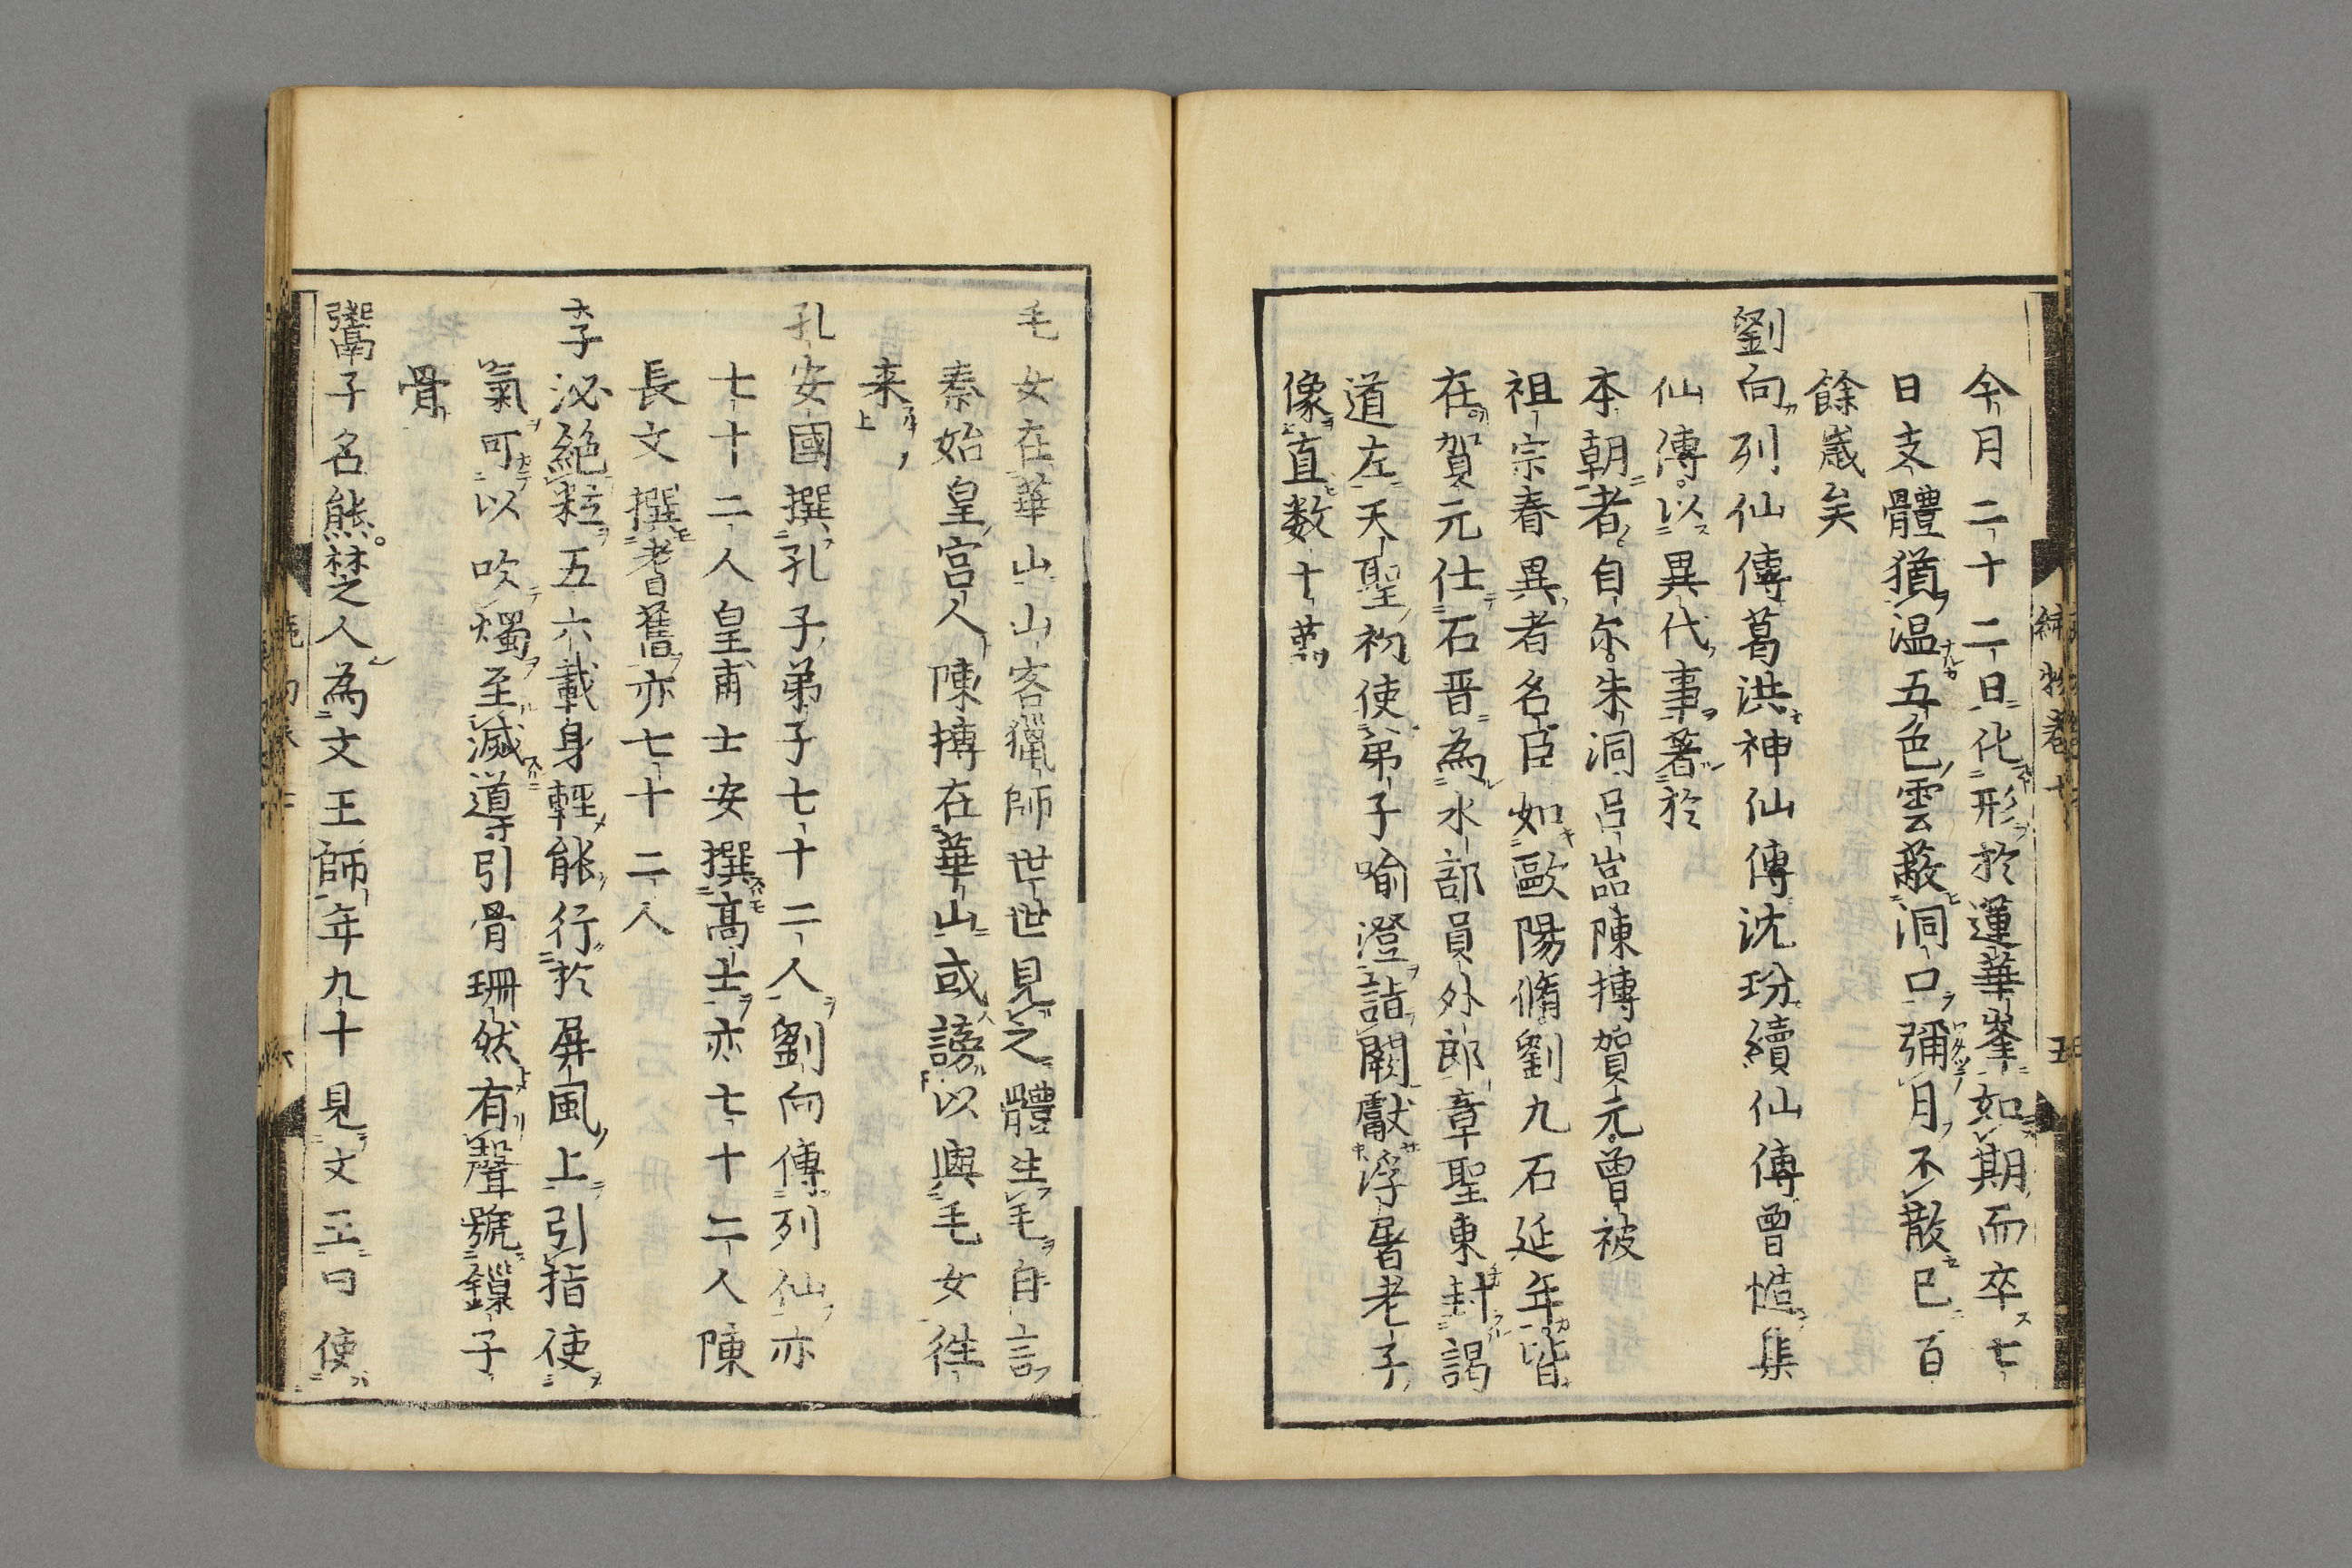 今月二十二日化形於蓮華峯如期而卒七
日支體猶温五色雲蔽洞口彌月不散已百
餘歳矣
劉向列仙傳葛洪神仙傳沈玢續仙傳曾慥集
仙傳以異代事著於
本朝者自尓朱洞呂嵓陳摶賀元曾被
祖宗春異者名臣如歐陽脩劉九石延年皆
在賀元仕石晋為水部員外郎章聖東封謁
道左天聖初使弟子喻澄詣闕獻浮屠老子
像直数十萬
毛女在華山山客獵師世世見之體生毛自言
秦始皇宮人陳摶在華山或謗以與毛女往
来
孔安國撰孔子弟子七十二人劉向傳列仙亦
七十二人皇甫士安撰高士亦七十二人陳
長文撰耆舊亦七十二人
李泌絶粒五六載身輕能行於屏風上引指使
氣可以吹燭至滅導引骨珊然有聲號鏁子
骨
鬻子名熊楚人為文王師年九十見文王曰使